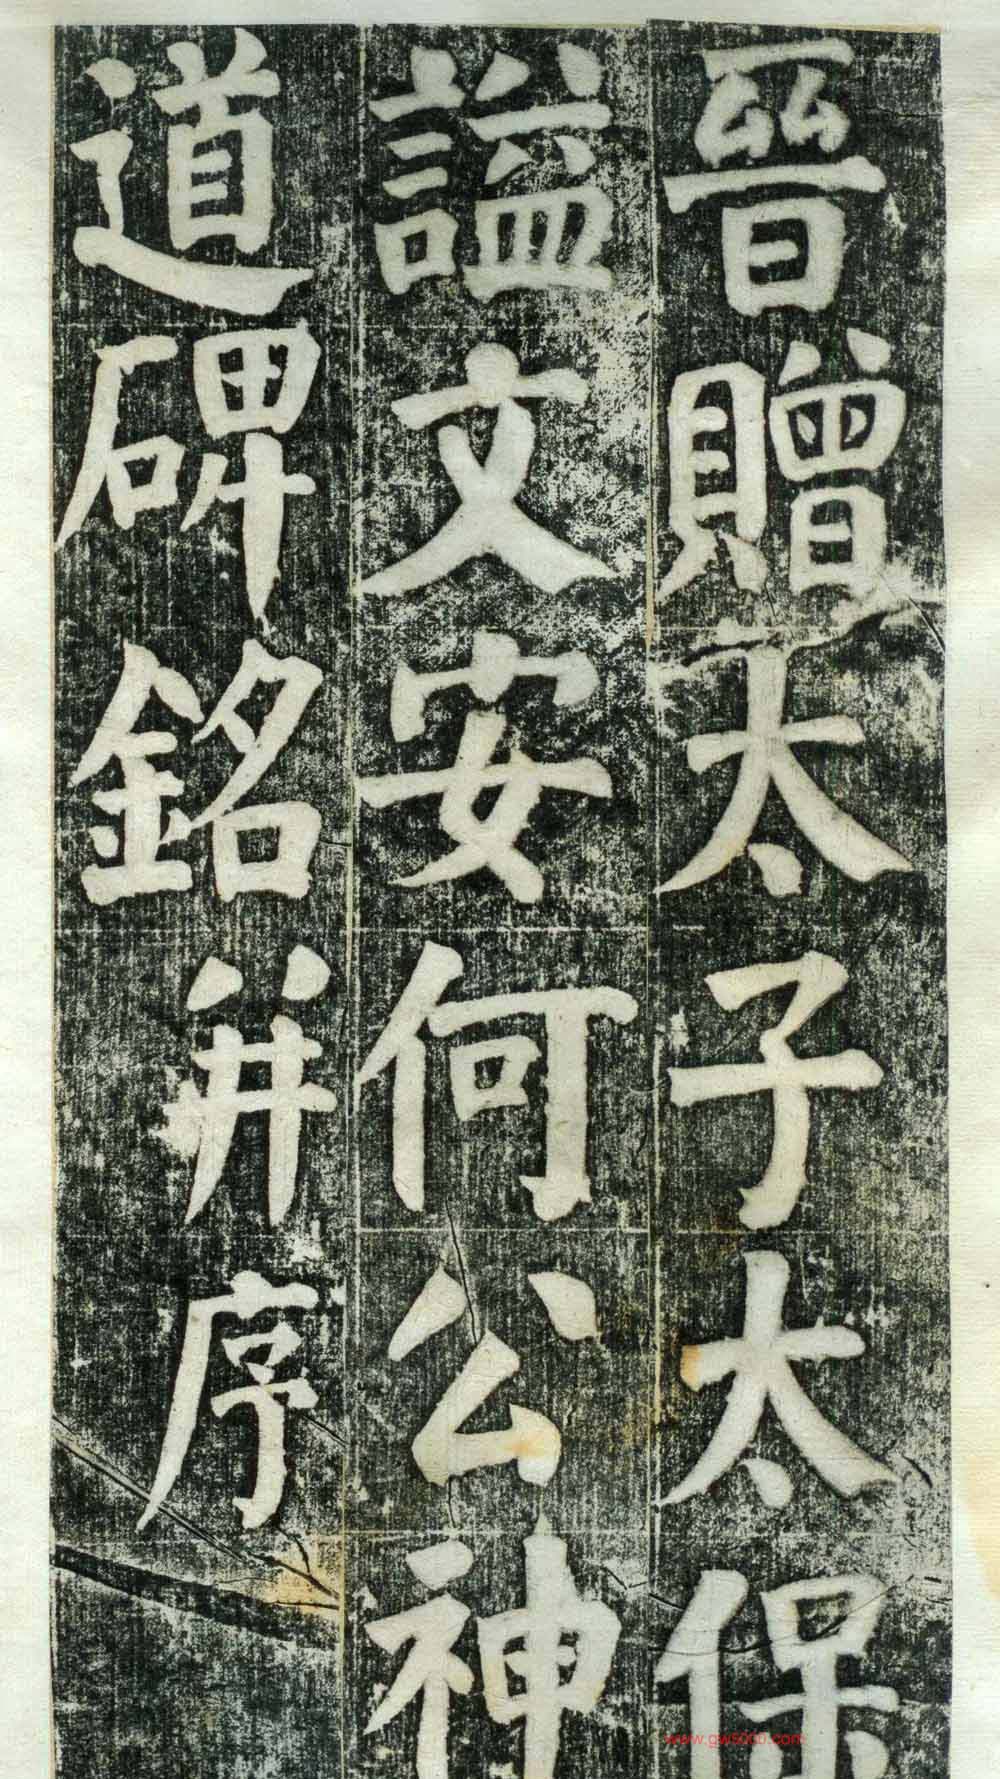 晉贈太子太保
謚文安何公神
道碑銘并序
www.gw5000.com